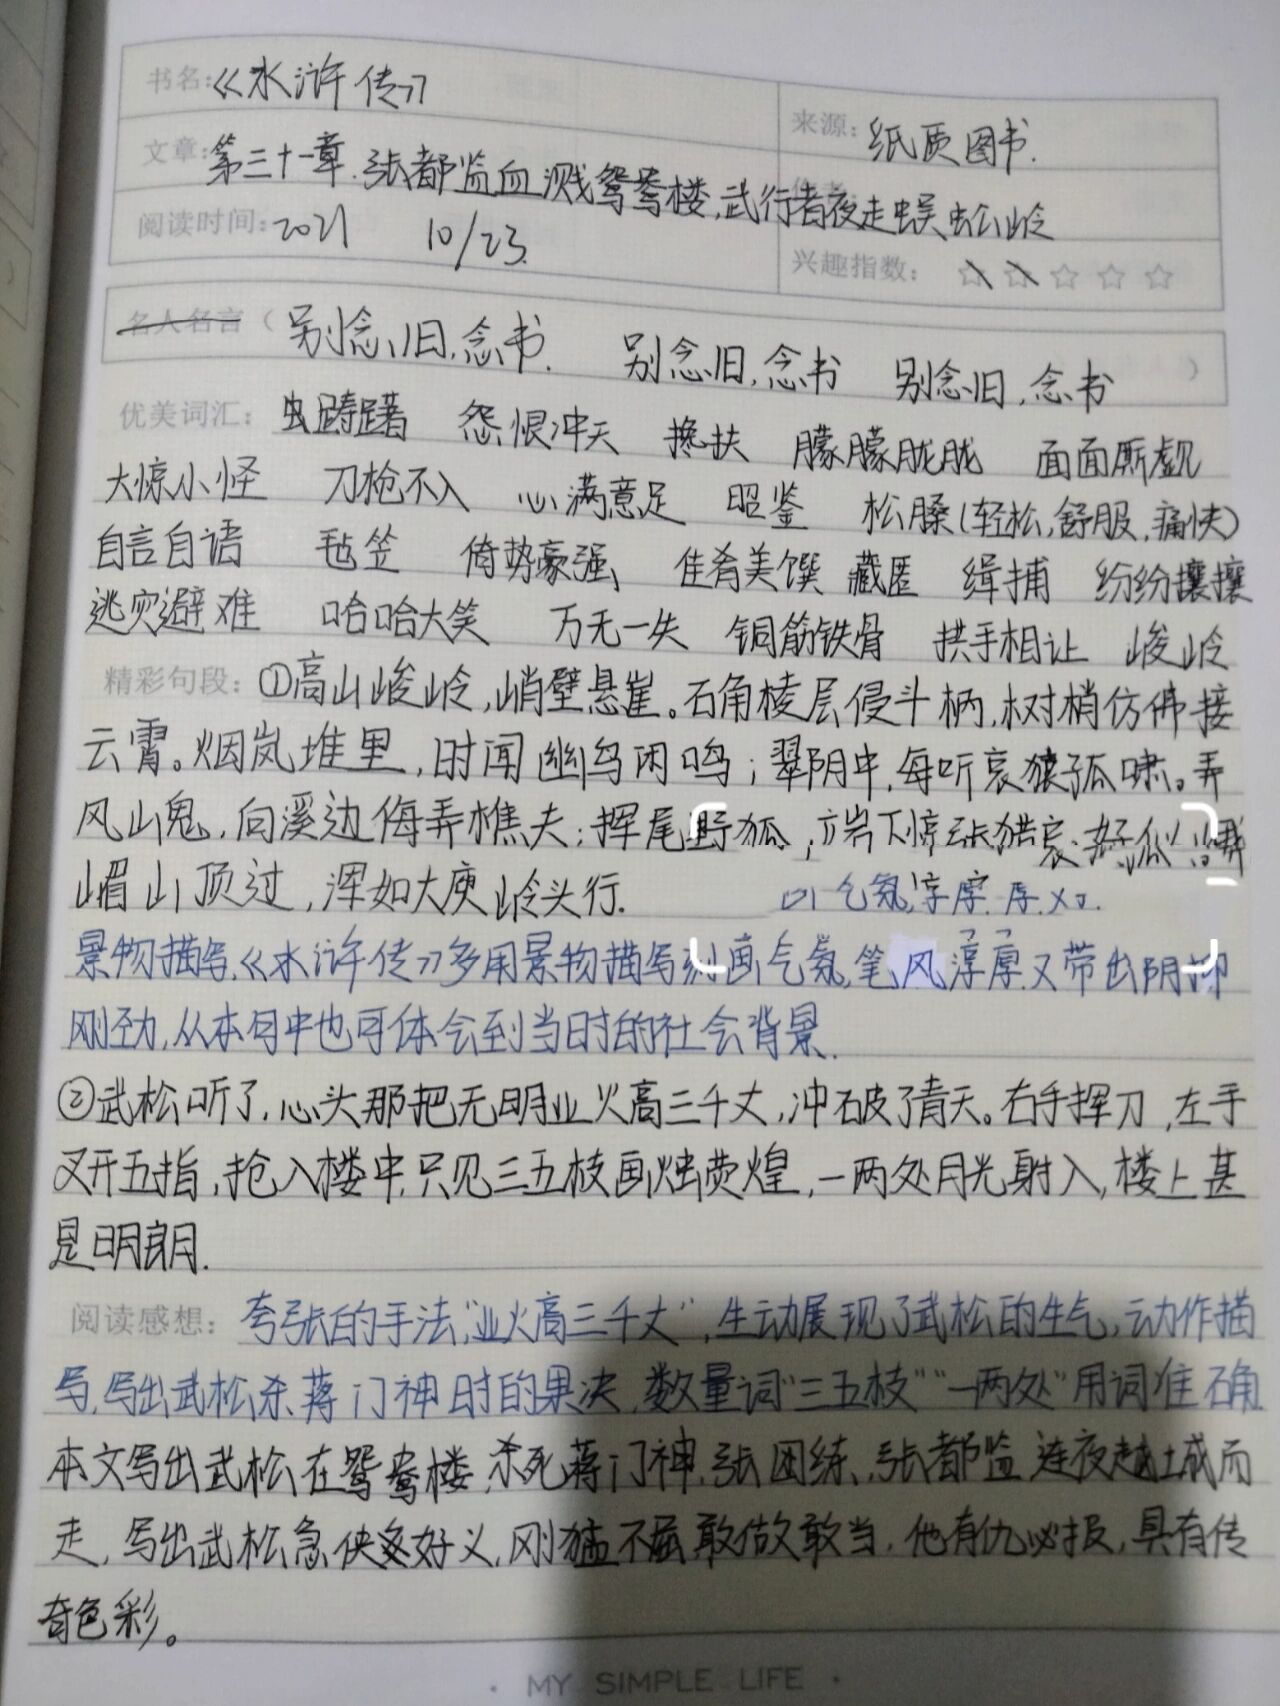 书名:《水浒传》
来源: 纸质图书.
文章: 第三十一章.张都监血溅鸳鸯楼,武行者夜走蜈蚣岭
阅读时间: 2021 10/23.
兴趣指数: ☆☆☆☆☆
名人名言 ( 别念旧,念书. 别念旧,念书 别念旧,念书 )
优美词汇: 踌躇 怨恨冲天 搀扶 朦朦胧胧 面面厮觑
大惊小怪 刀枪不入 心满意足 昭鉴 松臊(轻松,舒服,痛快)
自言自语 毡笠 倚势豪强 佳肴美馔 藏匿 缉捕 纷纷攘攘
逃灾避难 哈哈大笑 万无一失 铜筋铁骨 拱手相让 峻岭
精彩句段: ①高山峻岭,峭壁悬崖。石角棱层侵斗柄,树梢仿佛接
云霄。烟岚堆里,时闻幽鸟闲鸣;翠阴中,每听哀猿孤啸。弄
风山鬼,向溪边侮弄樵夫;挥尾野狐,立岩下惊张猎 好似峨
嵋山顶过,浑如大庾岭头行.
气氛,淳厚.厚.
景物描写.《水浒传》多用景物描写刻画气氛,笔风淳厚又带出阴抑
刚劲,从本句中也可体会到当时的社会背景.
②武松听了,心头那把无明业火高三千丈,冲破了青天。右手挥刀,左手
叉开五指,抢入楼中.只见三五枝画烛荧煌,一两处月光射入,楼上甚
是明朗.
阅读感想: 夸张的手法,“业火高三千丈”,生动展现了武松的生气,动作描
写,写出武松杀蒋门神时的果决,数量词“三五枝”“一两处”用词准确
本文写出武松在鸳鸯楼,杀死蒋门神,张团练,张都监 连夜越城而
走,写出武松急侠好义,刚猛不屈敢做敢当,他有仇必报,具有传
奇色彩。
· MY SIMPLE LIFE ·